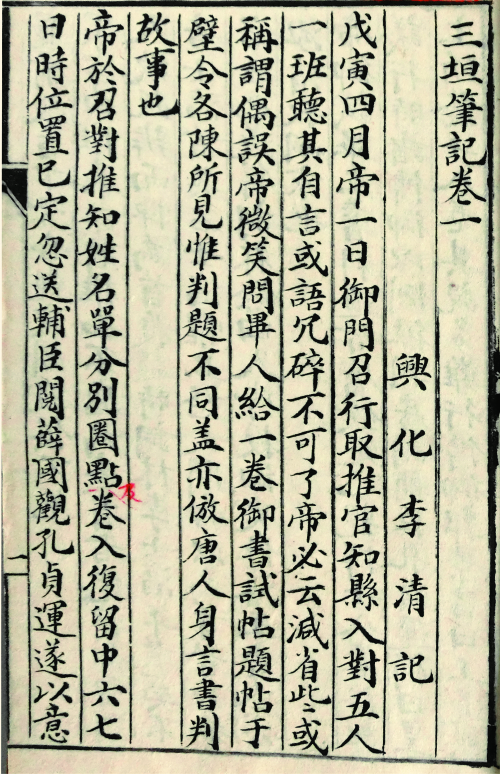 三垣筆記卷一
興化李清記
戊寅四月帝一日御門召行取推官知縣入對五人
一班聽其自言或語冗碎不可了帝必云減省些些或
稱謂偶誤帝微笑問畢人給一卷御書試帖題帖于
壁令各陳所見惟判題不同盖亦倣唐人身言書判
故事也
帝於召對推知姓名單分別圈點卷入復留中六七
及
日時位置已定忽送輔臣閱薛國觀孔貞運遂以意
一